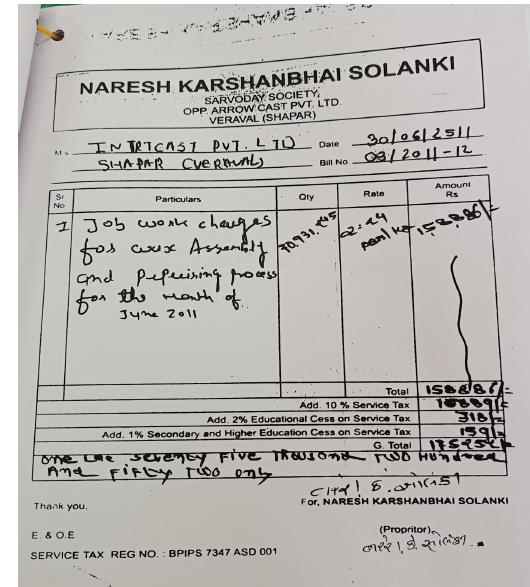 NARESH KARSHANBHAI SOLANKI
SARVODAY SOCIETY,
OPP. ARROW CAST PVT. LTD.
VERAVAL (SHAPAR)
M/s. INTRICAST PVT. LTD Date 30/06/2011
SHAPAR (VERAVAL) Bill No. 03/2011-12
Sr No Particulars Qty Rate Amount Rs
1 Job work charges 70.931.245 02=24 per/kg 1,58,886/=
for wax Assembly
and Prepairing process
for the month of
June 2011
Total 158886/=
Add. 10 % Service Tax 15889/=
Add. 2% Educational Cess on Service Tax 318/=
Add. 1% Secondary and Higher Education Cess on Service Tax 159/=
G. Total 175252/=
One Lac Seventy Five Thousand Two Hundred
And Fifty Two only
Thank you,
For, NARESH KARSHANBHAI SOLANKI
E. & O.E
(Propritor)
SERVICE TAX REG NO. : BPIPS 7347 ASD 001